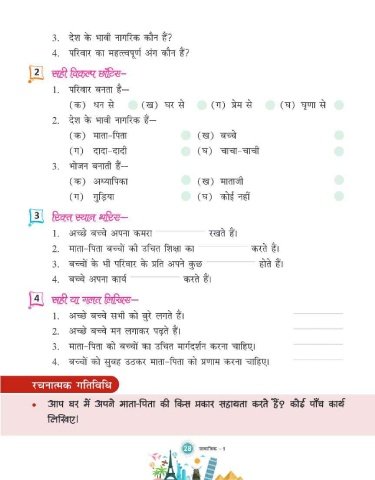 3. देश के भावी नागरिक कौन हैं?
4. परिवार का महत्त्वपूर्ण अंग कौन हैं?
2 सही विकल्प छाँटिए–
1. परिवार बनता है–
(क) धन से (ख) घर से (ग) प्रेम से (घ) घृणा से
2. देश के भावी नागरिक हैं–
(क) माता-पिता (ख) बच्चे
(ग) दादा-दादी (घ) चाचा-चाची
3. भोजन बनाती हैं–
(क) अध्यापिका (ख) माताजी
(ग) गुड़िया (घ) कोई नहीं
3 रिक्त स्थान भरिए–
1. अच्छे बच्चे अपना कमरा रखते हैं।
2. माता-पिता बच्चों को उचित शिक्षा का करते है।
3. बच्चों के भी परिवार के प्रति अपने कुछ होते हैं।
4. बच्चे अपना कार्य करते हैं।
4 सही या गलत लिखिए–
1. अच्छे बच्चे सभी को बुरे लगते हैं।
2. अच्छे बच्चे मन लगाकर पढ़ते हैं।
3. माता-पिता को बच्चों का उचित मार्गदर्शन करना चाहिए।
4. बच्चों को सुबह उठकर माता-पिता को प्रणाम करना चाहिए।
रचनात्मक गतिविधि
• आप घर में अपने माता-पिता की किस प्रकार सहायता करते हैं? कोई पाँच कार्य
लिखिए।
28 सामाजिक - 1